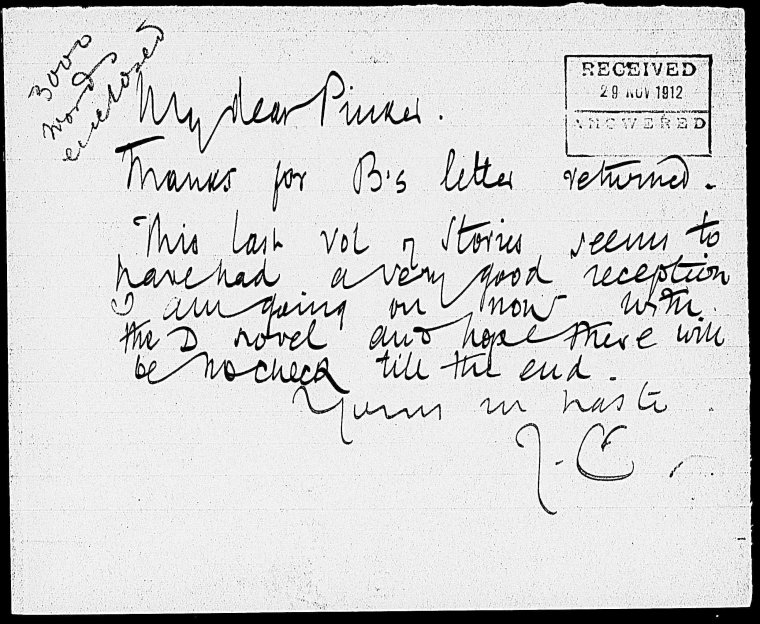 3000
words
enclosed
RECEIVED
29 NOV 1912
ANSWERED
My dear Pinker.
Thanks for B's letter returned.
This last vol of Stories seems to
have had a very good reception
I am going on now with
the D novel and hope there will
be no check till the end.
Yours in haste
J. C.